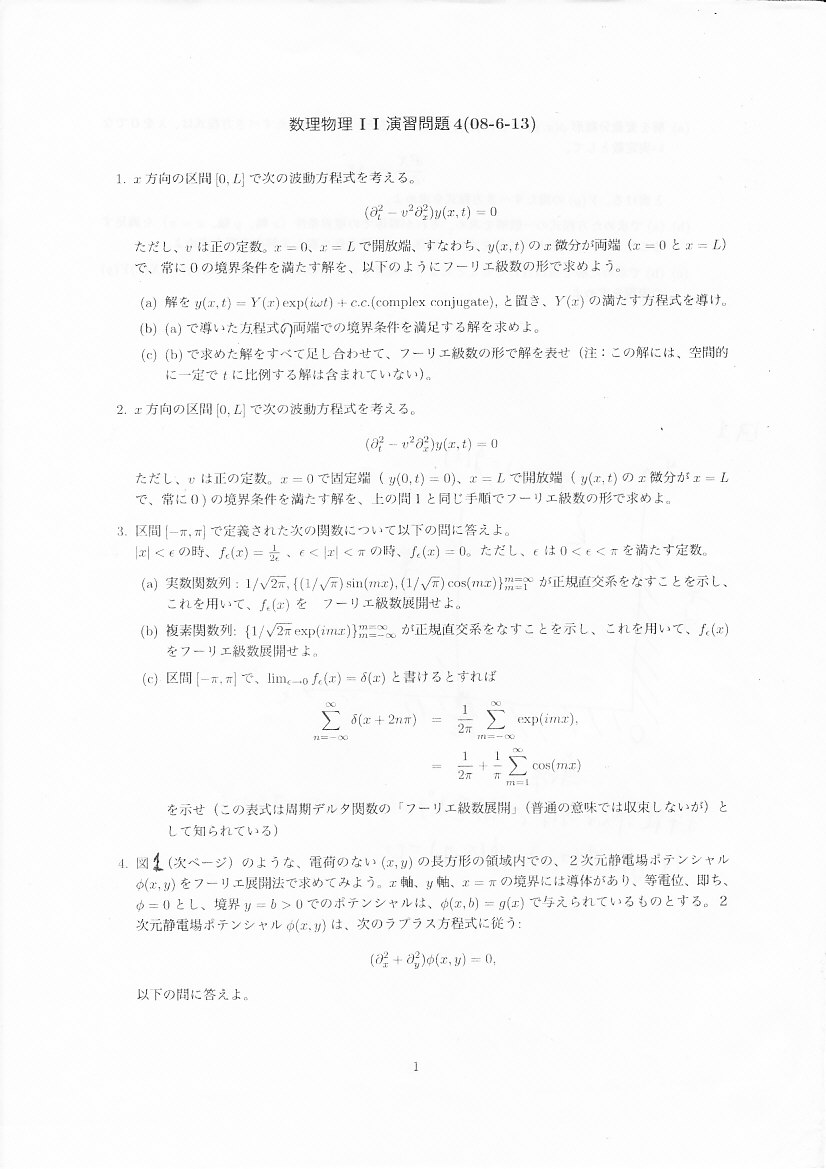 数理物理 I I 演習問題 4(08-6-13)
1. x 方向の区間 [0, L] で次の波動方程式を考える。
(∂_t^2 − v^2∂_x^2)y(x, t) = 0
ただし、v は正の定数。x = 0、x = L で開放端、すなわち、y(x, t) の x 微分が両端（x = 0 と x = L）
で、常に 0 の境界条件を満たす解を、以下のようにフーリエ級数の形で求めよう。
(a) 解を y(x, t) = Y(x) exp(iωt) + c.c.(complex conjugate), と置き、Y(x) の満たす方程式を導け。
(b) (a) で導いた方程式の両端での境界条件を満足する解を求めよ。
(c) (b) で求めた解をすべて足し合わせて、フーリエ級数の形で解を表せ（注：この解には、空間的
に一定で t に比例する解は含まれていない）。
2. x 方向の区間 [0, L] で次の波動方程式を考える。
(∂_t^2 − v^2∂_x^2)y(x, t) = 0
ただし、v は正の定数。x = 0 で固定端（ y(0, t) = 0)、x = L で開放端（ y(x, t) の x 微分が x = L
で、常に 0 ) の境界条件を満たす解を、上の問 1 と同じ手順でフーリエ級数の形で求めよ。
3. 区間 [−π, π] で定義された次の関数について以下の問に答えよ。
|x| < ϵ の時、f_ϵ(x) = 1/2ϵ 、ϵ < |x| < π の時、f_ϵ(x) = 0。ただし、ϵ は 0 < ϵ < π を満たす定数。
(a) 実数関数列 : 1/√2π, {(1/√π) sin(mx), (1/√π) cos(mx)}_{m=1}^{m=∞} が正規直交系をなすことを示し、
これを用いて、f_ϵ(x) を フーリエ級数展開せよ。
(b) 複素関数列: {1/√2π exp(imx)}_{m=−∞}^{m=∞} が正規直交系をなすことを示し、これを用いて、f_ϵ(x)
をフーリエ級数展開せよ。
(c) 区間 [−π, π] で、lim_{ϵ→0} f_ϵ(x) = δ(x) と書けるとすれば
∑_{n=−∞}^{∞} δ(x + 2nπ) = 1/2π ∑_{m=−∞}^{∞} exp(imx),
= 1/2π + 1/π ∑_{m=1}^{∞} cos(mx)
を示せ（この表式は周期デルタ関数の「フーリエ級数展開」（普通の意味では収束しないが）と
して知られている）
4. 図1（次ページ）のような、電荷のない (x, y) の長方形の領域内での、２次元静電場ポテンシャル
ϕ(x, y) をフーリエ展開法で求めてみよう。x 軸、y 軸、x = π の境界には導体があり、等電位、即ち、
ϕ = 0 とし、境界 y = b > 0 でのポテンシャルは、ϕ(x, b) = g(x) で与えられているものとする。２
次元静電場ポテンシャル ϕ(x, y) は、次のラプラス方程式に従う:
(∂_x^2 + ∂_y^2)ϕ(x, y) = 0,
以下の問に答えよ。
1